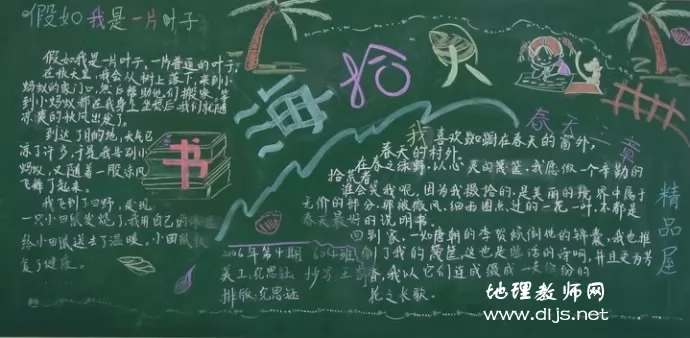 假如我是一片叶子
假如我是一片叶子，一片普通的叶子，
在秋天里，我会从树上落下，来到小
蚂蚁的家门口，然后帮助他们搬家，等
到小蚂蚁都在我身上坐好后，我们就随
凉爽的秋风出发了。
到达了目的地，天气已
凉了许多，于是我告别小
蚂蚁，又随着一股凉风
飞舞了起来。
我飞到了田野，发现
一只小田鼠发烧了，我用自己的
给小田鼠送去了温暖。小田鼠
复了健康。
书
海拾贝
春天三章
我喜欢踟蹰在春天的窗外，
春天的村外。
在春之绿野，以心灵的篾筐，我愿做一个辛勤的
拾荒者。
谁会笑我呢，因为我掇拾的，是美丽的境界中属于
无价的部分，那被微风、细雨圈点过的一花一叶，不都是
春天最好的说明书。
回到家，一如唐朝的李贺倾倒他的锦囊，我也推
倒了我的篾筐，这也是些活的诗呵，并且更为芳
香，我以它们连成做成一天份的
花之长歌。
2006年第十期
美工：倪思证
抄写：王
排版：倪思证
精品屋
地理教师网
www.dljs.net